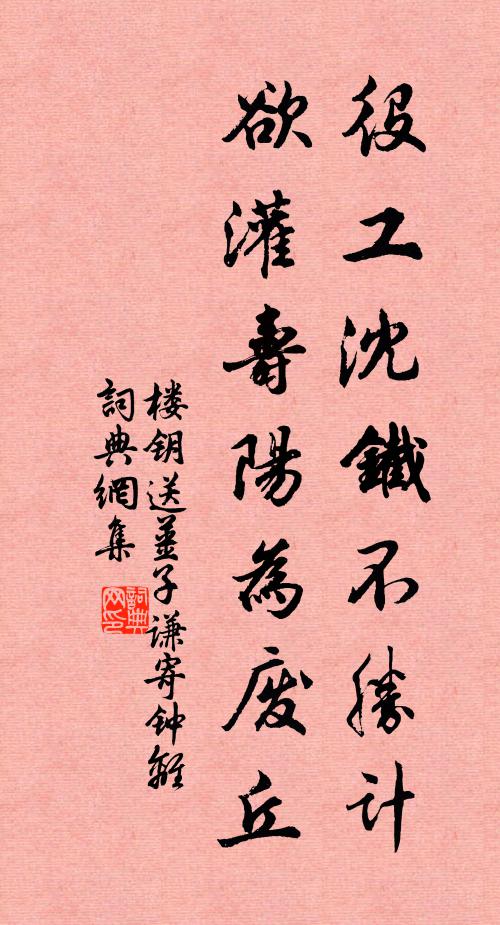 役工沈鐵不勝計
欲灌壽陽為廢丘
楼钥送姜子谦寄钟離
詞典網集
詞典網印